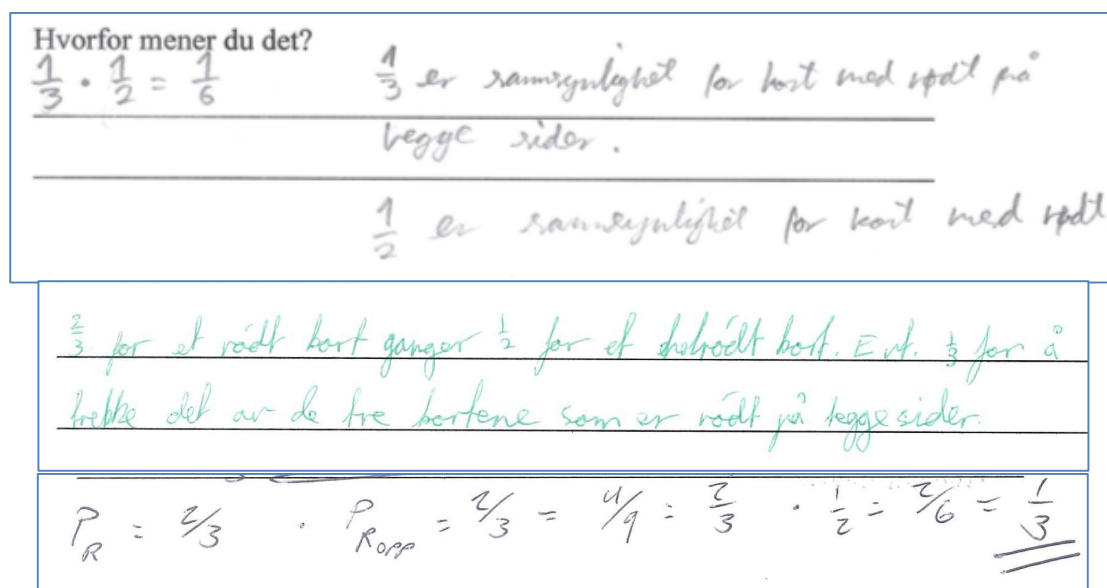 Hvorfor mener du det?
1/3 · 1/2 = 1/6
1/3 er sannsynlighet for kort med rødt på
begge sider.
1/2 er sannsynlighet for kort med rødt
2/3 for et rødt kort ganger 1/2 for et helrødt kort. Evt. 1/3 for å
trekke det av de tre kortene som er rødt på begge sider.
P_R = 2/3 · P_R OPP = 2/3 = 4/9 = 2/3 · 1/2 = 2/6 = 1/3